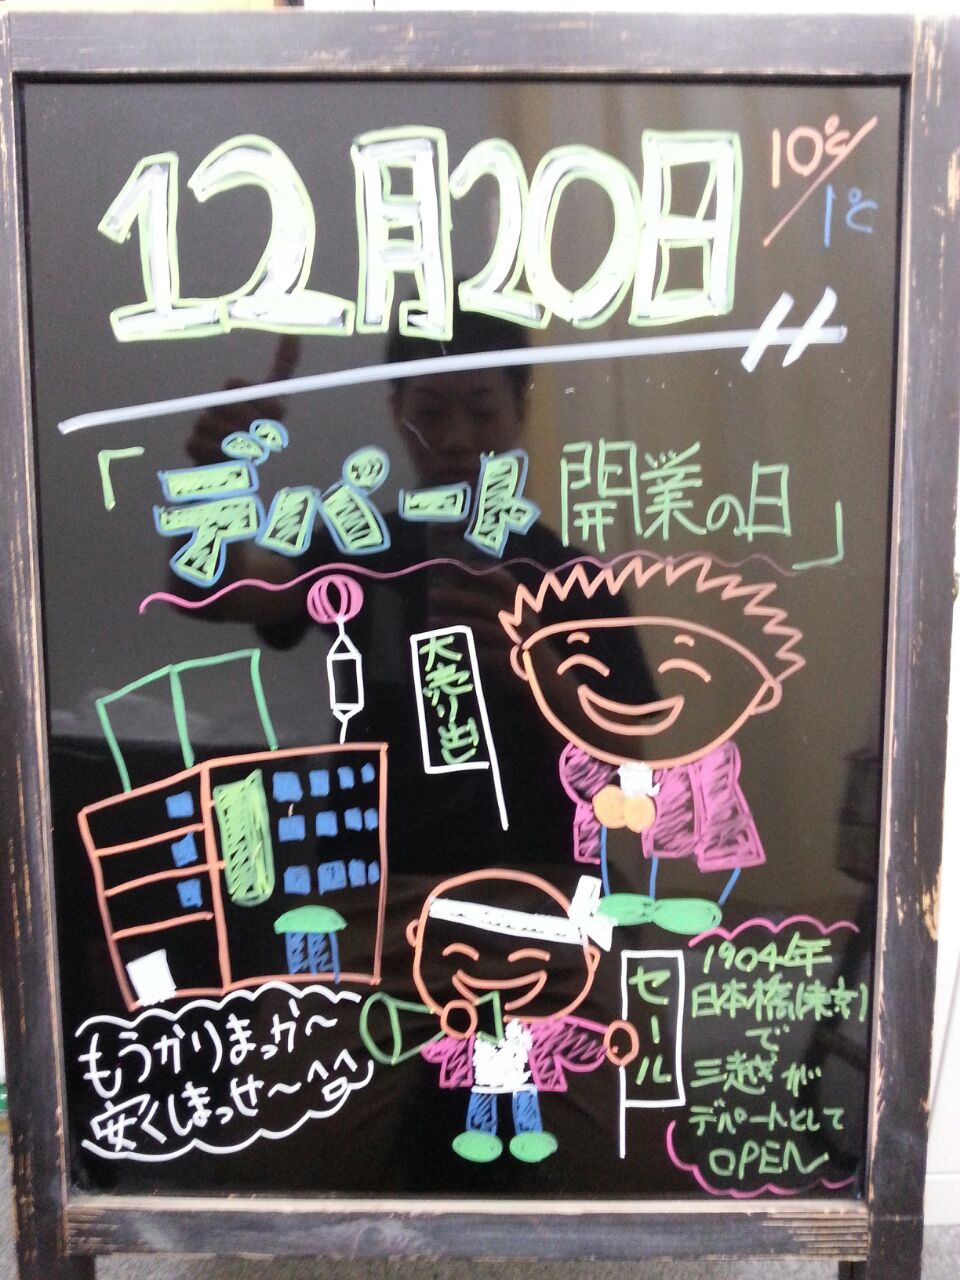 12月20日
10℃/1℃
「デパート開業の日」
大売り出し
セール
もうかりまっか~
安くしまっせ~^□^
1904年
日本橋(東京)
で
三越が
デパートとして
OPEN